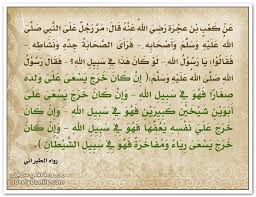 عَنْ كَعْبِ بْنِ عُجْرَةَ رَضِيَ اللهُ عَنْهُ قَالَ: مَرَّ رَجُلٌ عَلَى النَّبِيِّ صَلَّى
اللهُ عَلَيْهِ وَسَلَّمَ وَأَصْحَابِهِ - فَرَأَى الصَّحَابَةُ جِدَّهُ وَنَشَاطَهُ -
فَقَالُوا: يَا رَسُولَ اللهِ - لَوْ كَانَ هَذَا فِي سَبِيلِ اللهِ؟ - فَقَالَ رَسُولُ
اللهِ صَلَّى اللهُ عَلَيْهِ وَسَلَّمَ: (إِنْ كَانَ خَرَجَ يَسْعَى عَلَى وَلَدِهِ
صِغَارًا فَهُوَ فِي سَبِيلِ اللهِ - وَإِنْ كَانَ خَرَجَ يَسْعَى عَلَى
أَبَوَيْنِ شَيْخَيْنِ كَبِيرَيْنِ فَهُوَ فِي سَبِيلِ اللهِ - وَإِنْ كَانَ
خَرَجَ عَلَى نَفْسِهِ يَعُفُّهَا فَهُوَ فِي سَبِيلِ اللهِ - وَإِنْ كَانَ
خَرَجَ يَسْعَى رِيَاءً وَمُفَاخَرَةً فَهُوَ فِي سَبِيلِ الشَّيْطَانِ).
رواه الطبراني